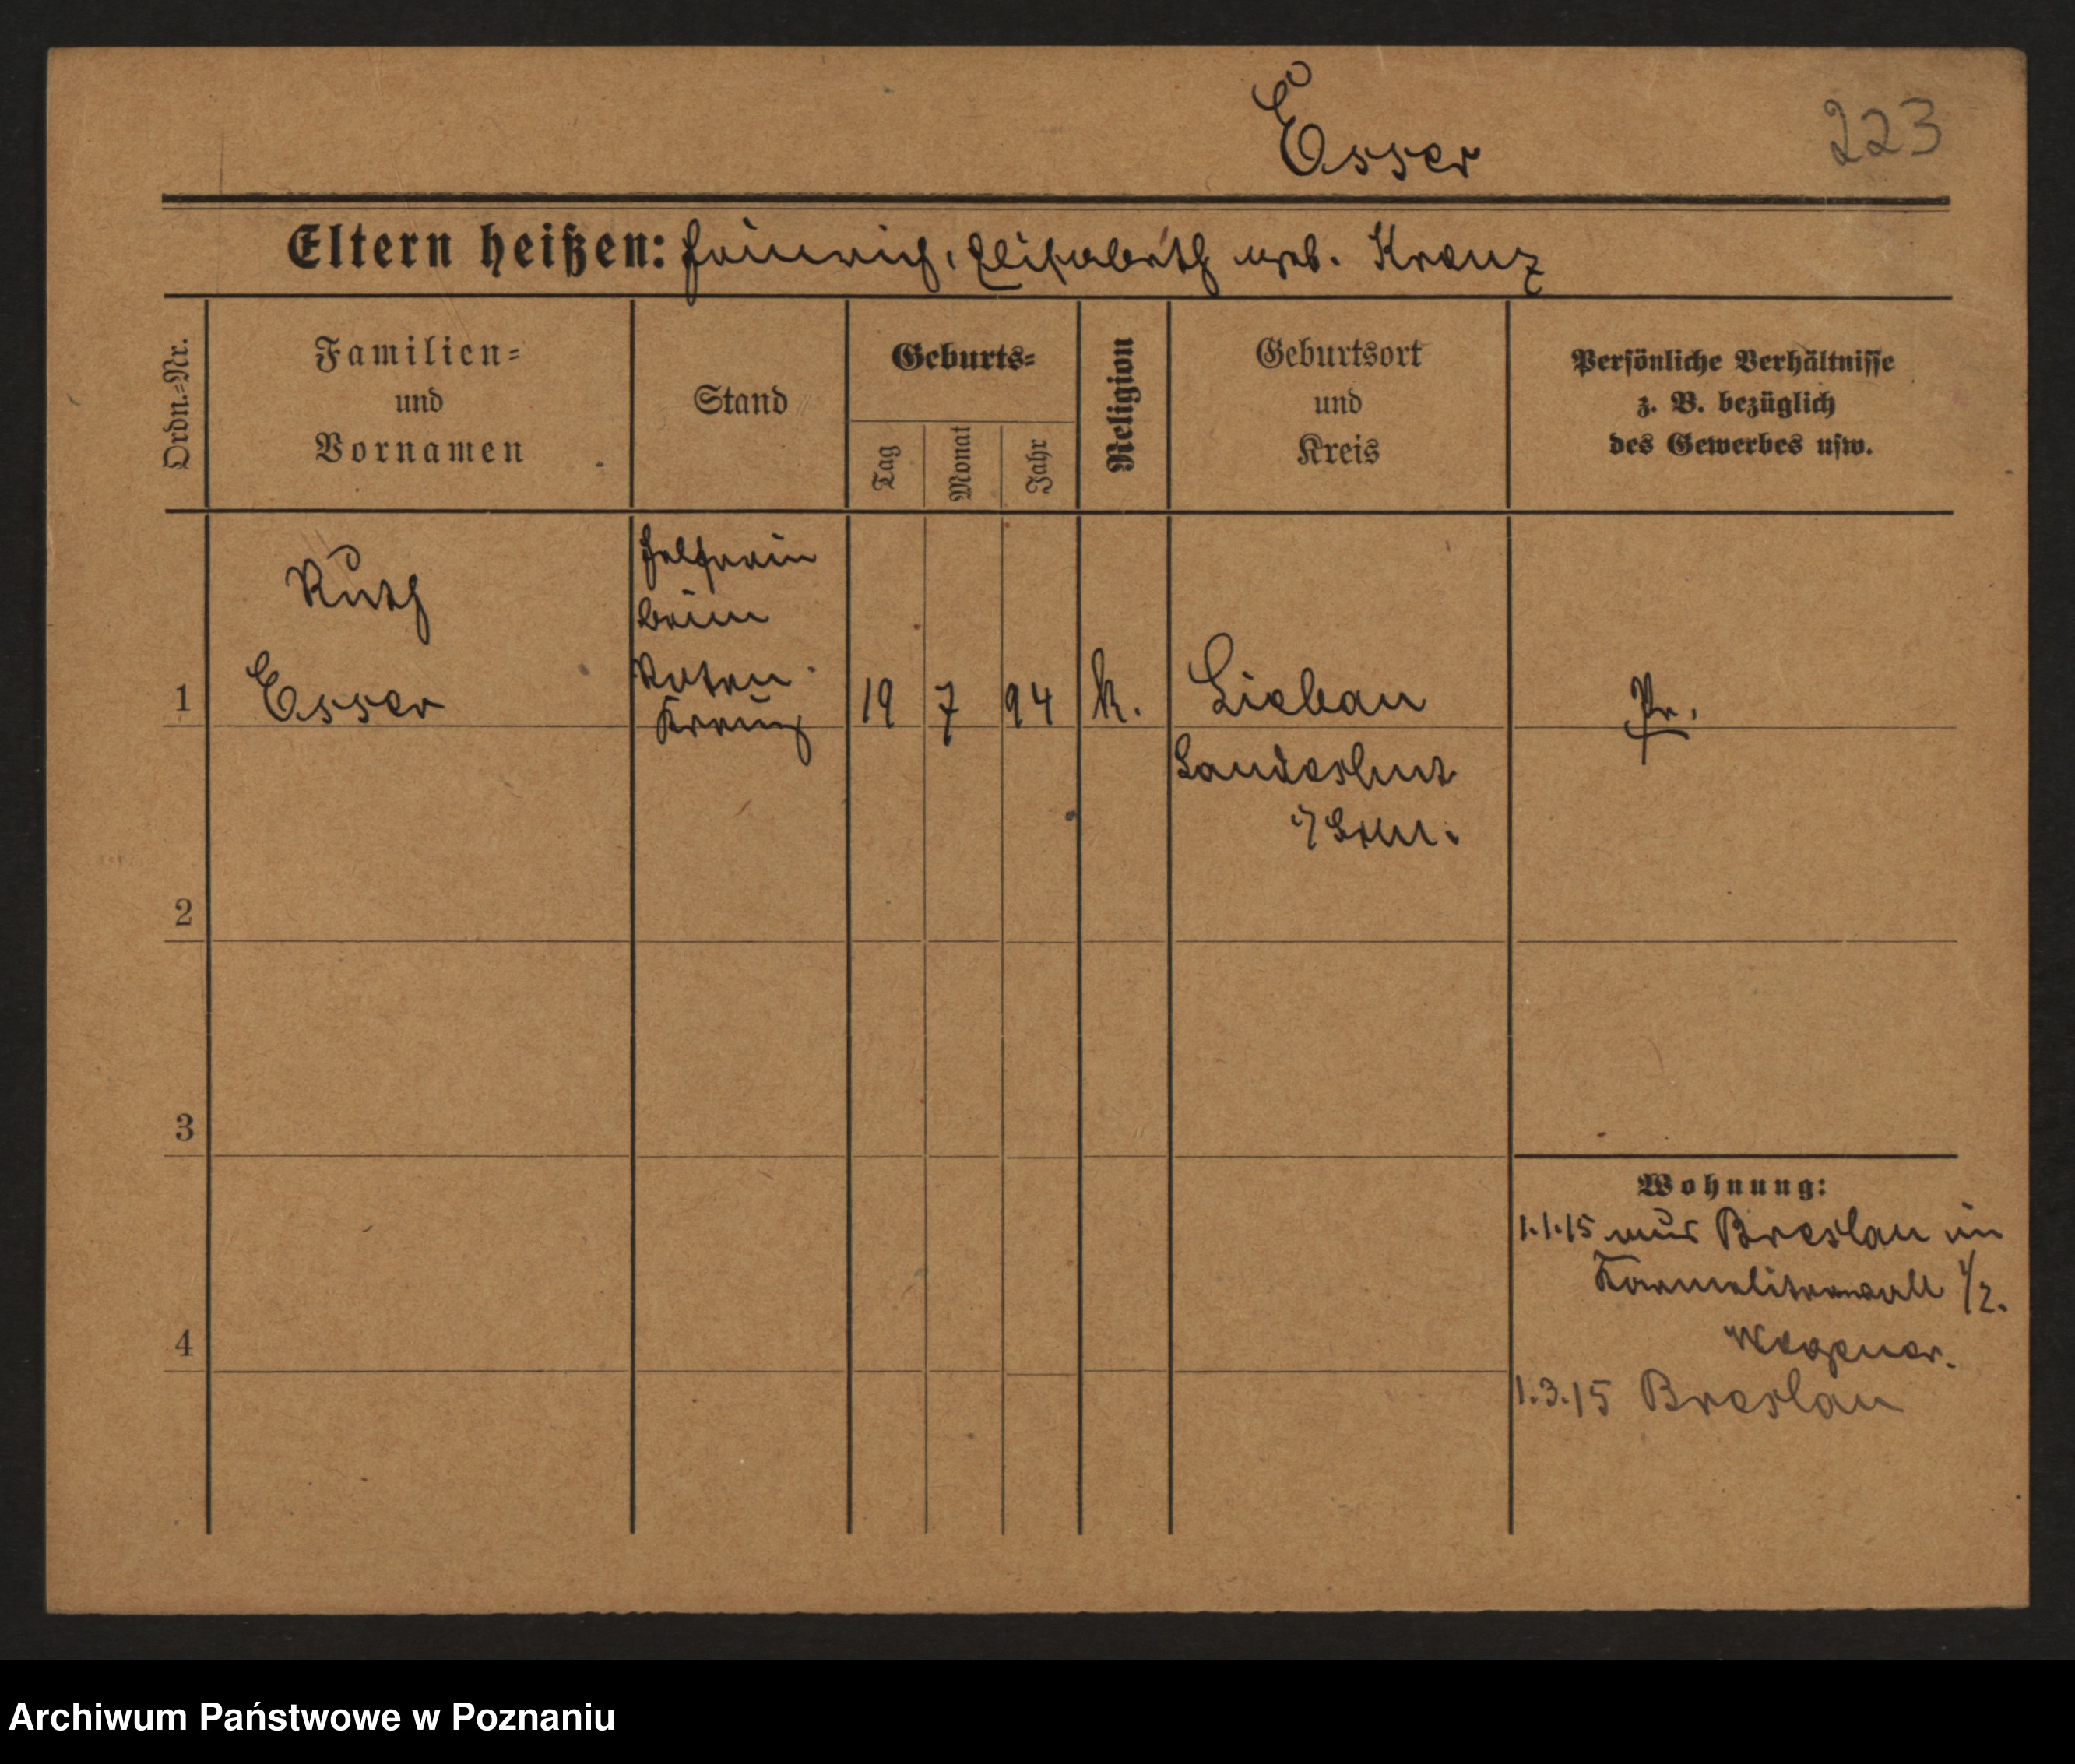 Esser
223
Eltern heißen: Heinrich, Elisabeth geb. Kranz
Ordn.-Nr.
Familien-
und
Vornamen
Stand
Geburts-
Tag
Monat
Jahr
Religion
Geburtsort
und
Kreis
Persönliche Verhältnisse
z. B. bezüglich
des Gewerbes usw.
Ruth
Esser
Helferin
beim
Roten
Kreuz
1
19
7
94
k.
Liebau
Landeshut
i/Schl.
Pr.
2
3
4
Wohnung:
1.1.15 aus Breslau in
Karmeliterwall 1/2.
Wegener.
1.3.15 Breslau
Archiwum Państwowe w Poznaniu